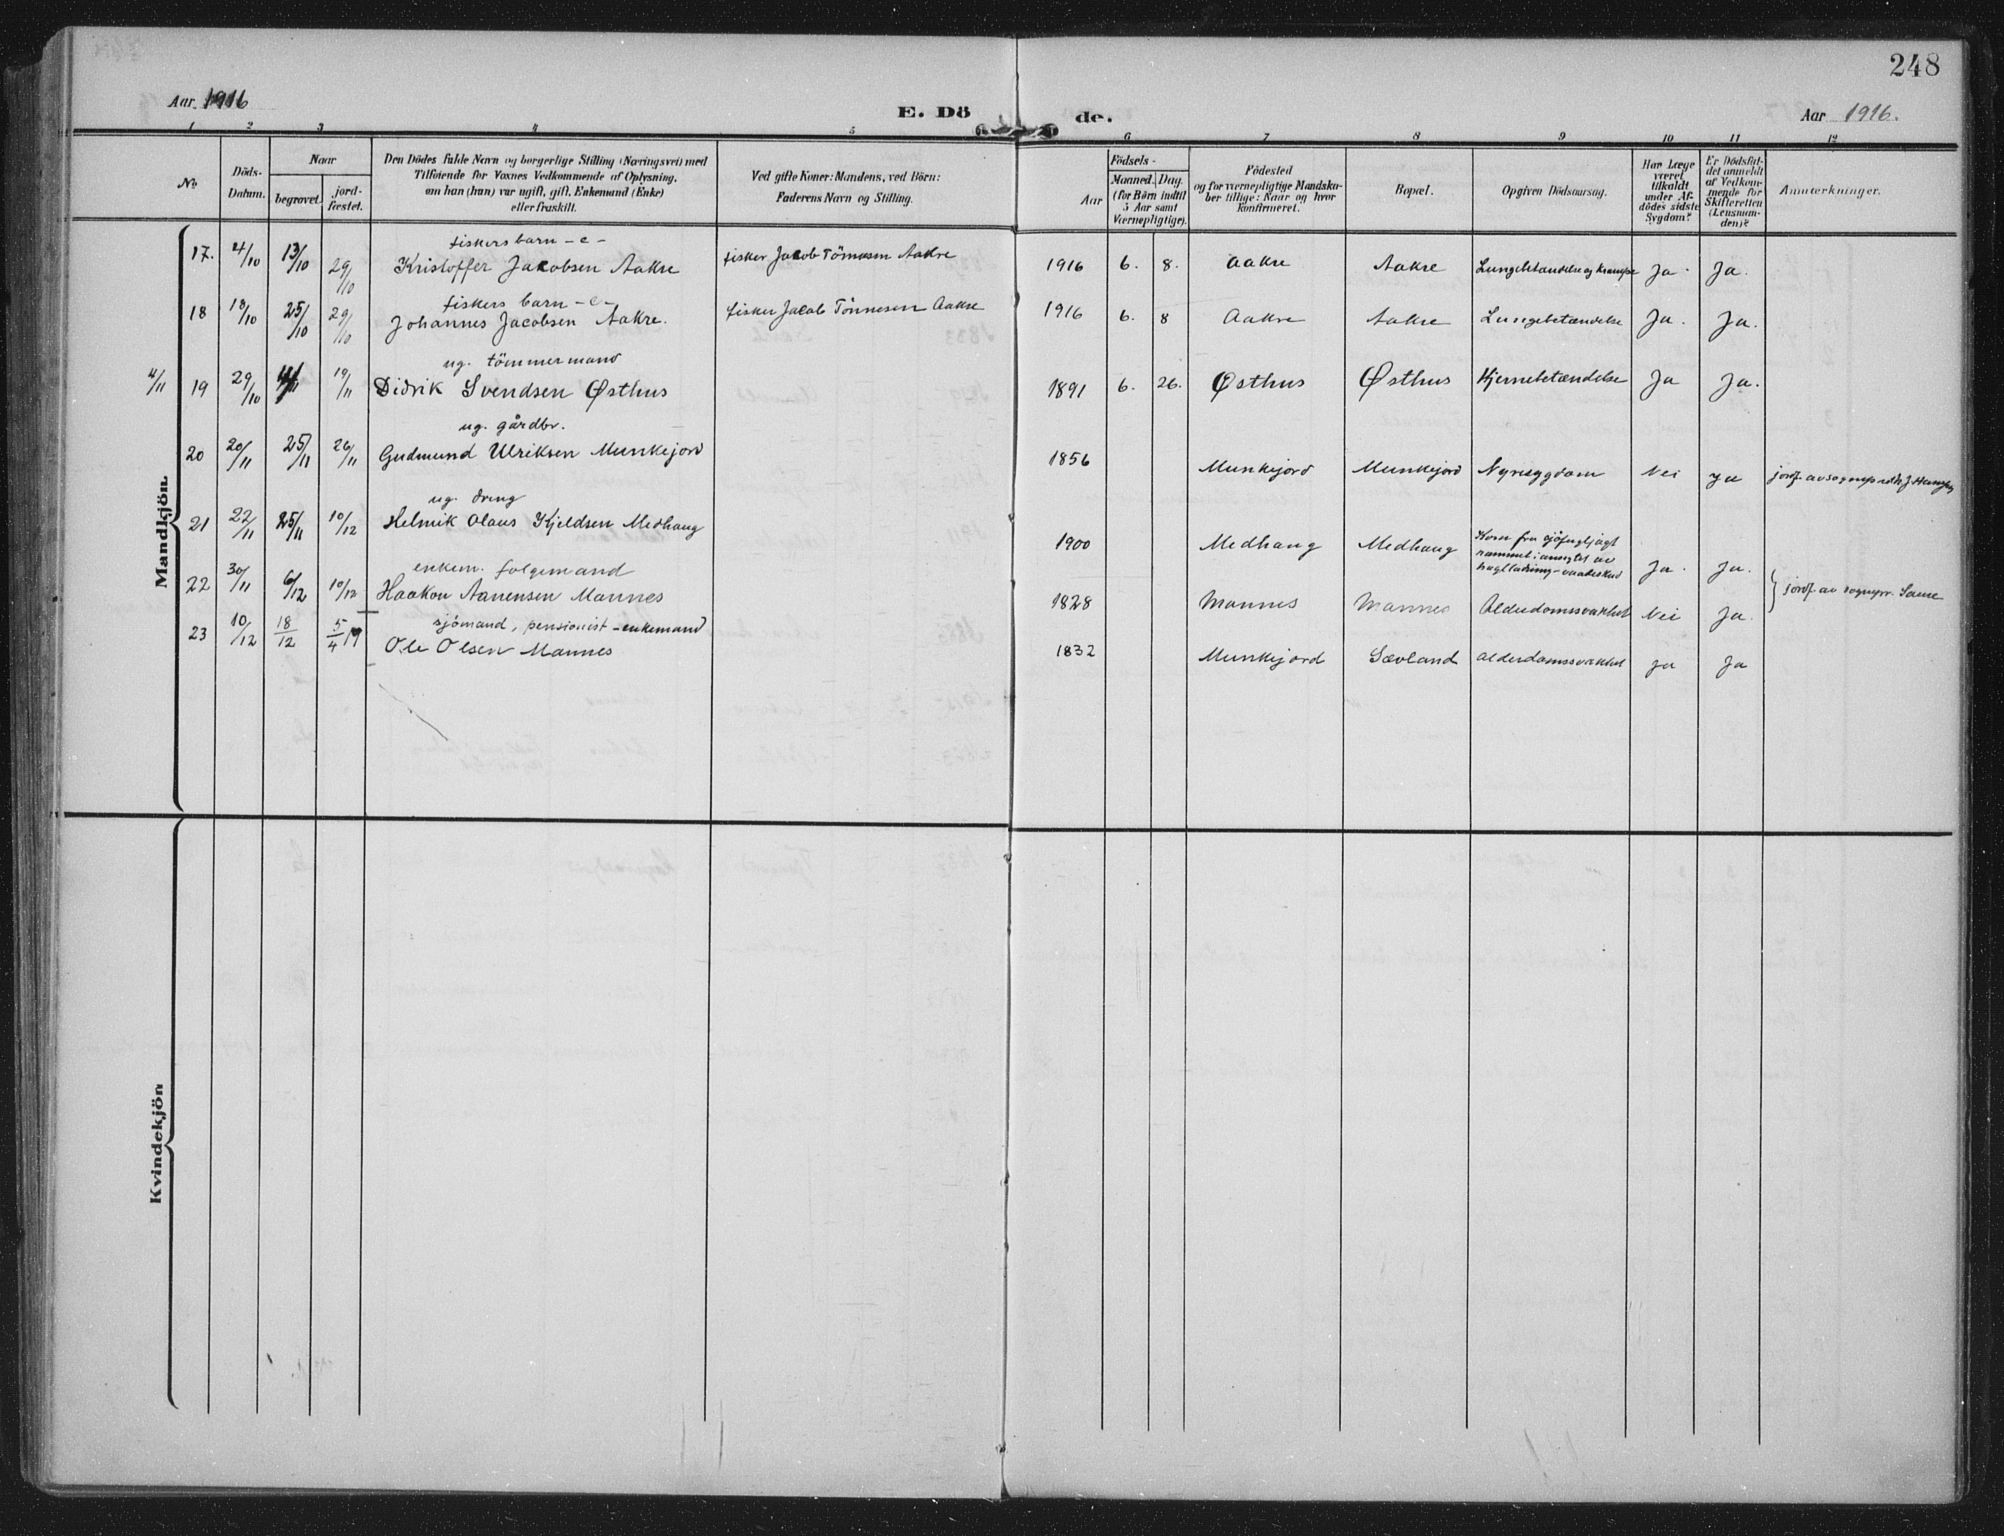 248
Aar 1916
E. Dö
de.
Aar 1916.
1 2 3 4 5 6 7 8 9 10 11 12
No
Döds-
Datum.
Naar
begravet.
jord-
fæstet.
Den Dödes fulde Navn og borgerlige Stilling (Næringsvei) med
Tilföiende for Voxnes Vedkommende af Oplysning,
om han (hun) var ugift, gift, Enkemand (Enke)
eller fraskilt.
Ved gifte Koner: Mandens, ved Börn:
Faderens Navn og Stilling.
Födsels-
Aar
Maaned. Dag.
(for Börn indtil
5 Aar samt
Værnepligtige).
Födested
og for værnepligtige Mandska-
ber tillige: Naar og hvor
konfirmeret.
Bopæl.
Opgiven Dödsaarsag.
Har Læge
været
tilkaldt
under Af-
dödes sidste
Sygdom?
Er Dödsfal-
det anmeldt
af Vedkom-
mende for
Skifteretten
(Lensman-
den)?
Anmærkninger.
Mandkjön.
fiskers barn - e -
17. 4/10 13/10 29/10 Kristoffer Jacobsen Aakre fisker Jacob Tönnesen Aakre 1916 6. 8. Aakre Aakre Lungebetændelse og krampe Ja. Ja.
fiskers barn - e -
18 18/10 25/10 29/10 Johannes Jacobsen Aakre. fisker Jacob Tönnesen Aakre 1916 6. 8 Aakre Aakre Lungebetændelse Ja. Ja.
ug. tömmermand
4/11 19 29/10 19/11 Didrik Svendsen Østhus 1891 6. 26. Østhus Østhus Hjernebetændelse Ja Ja.
ug. gårdbr.
20 20/11 25/11 26/11 Gudmund Ulriksen Munkejord 1856 Munkejord Munkejord Nyresygdom Nei ja jordf. av sognepr.
ug. dreng
21 22/11 25/11 10/12 Helmik Olaus Kjeldsen Medhaug 1900 Medhaug Medhaug Kom fra sjöfugljagt
rammet i ansigtet av
haglladning - vaadeskud Ja. Ja.
enkem. folgemand
22 30/11 6/12 10/12 Haakon Aanensen Mannes 1828 Mannes Mannes Alderdomssvakhet Nei Ja. jordf. av sognepr. Saure
sjömand, pensionist - enkemand
23 10/12 18/12 5/4 17 Ole Olsen Mannes 1832 Munkejord Sævland Alderdomssvakhet ja Ja
Kvindekjön